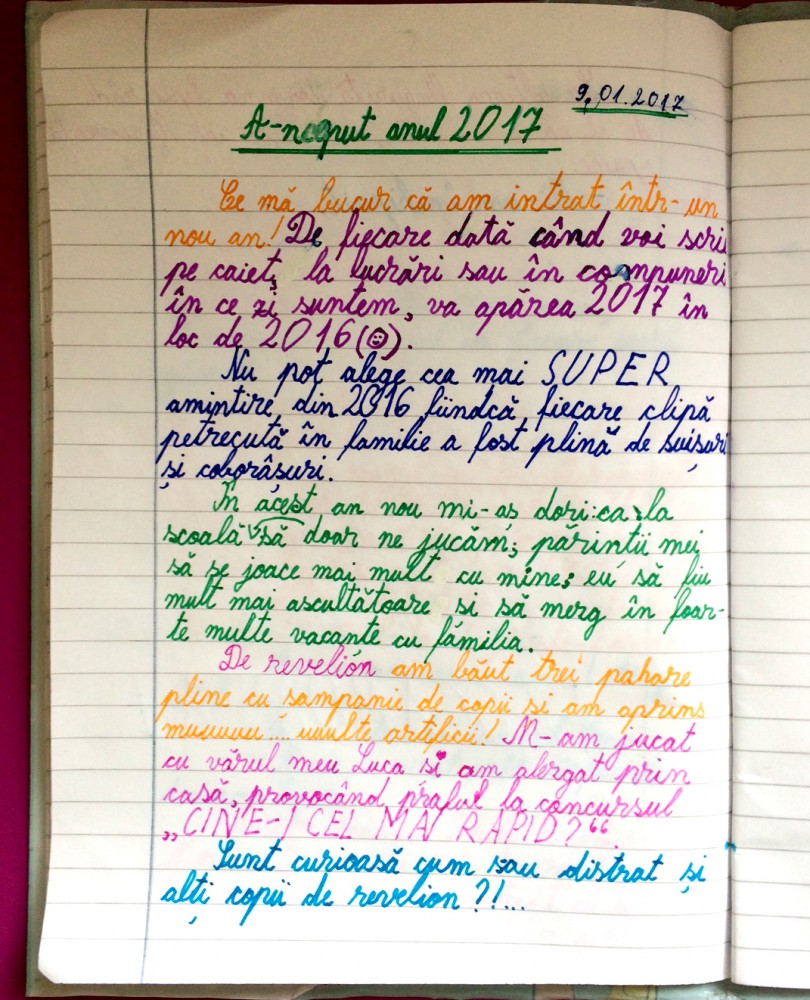 9.01.2017
A-nceput anul 2017
Ce mă bucur că am intrat într-un
nou an! De fiecare dată când voi scrie
pe caiet, la lucrări sau în compuneri
în ce zi suntem, va apărea 2017 în
loc de 2016(☺).
Nu pot alege cea mai SUPER
amintire din 2016 fiindcă fiecare clipă
petrecută în familie a fost plină de suișuri
și coborâșuri.
În acest an nou mi-aș dori:ca la
școală să doar ne jucăm; părinții mei
să se joace mai mult cu mine; eu să fiu
mult mai ascultătoare si să merg în foar-
te multe vacante cu familia.
De revelion am băut trei pahare
pline cu sampanie de copii si am aprins
muuuuu...uuulte artificii! M-am jucat
cu vărul meu Luca si am alergat prin
casă, provocând praful la concursul
„CINE-I CEL MAI RAPID?“
Sunt curioasă cum sau distrat și
alți copii de revelion ?!...